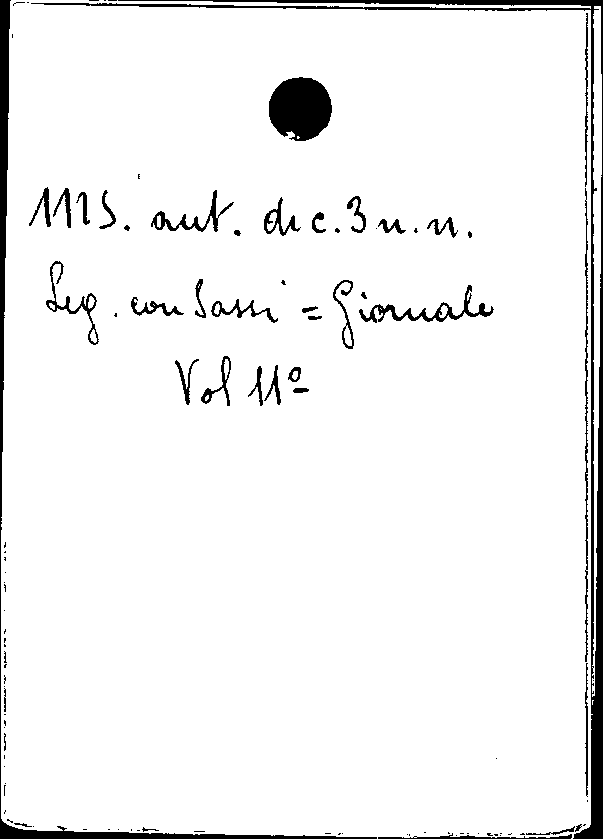 MS. aut. di c. 3 n. n.
Leg. con Sassi = Giornale
Vol 11º